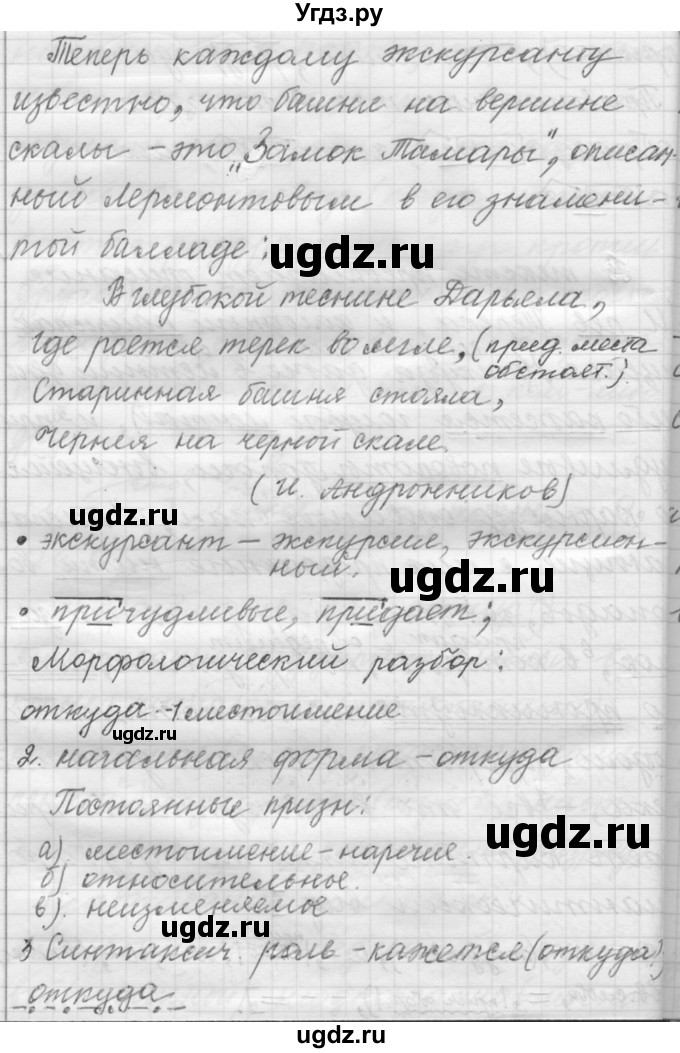 Угдз.ру
Теперь каждому экскурсанту
известно, что башня на вершине
скалы – это „Замок Тамары", описан-
ный Лермонтовым в его знамени-
той балладе:
ugdz.ru
В глубокой теснине Дарьела,
Где роется терек во мгле, (прид. места
обстоят.)
Старинная башня стояла,
Чернея на черной скале.
(И. Андронников)
ugdz.ru
• экскурсант – экскурсие, экскурсион-
ный.
ugdz.ru
• причудливые, придает;
Морфологический разбор:
откуда -1 местоимение
ugdz.ru
2. начальная форма – откуда
Постоянные призн:
ugdz.ru
а). местоимение – наречие.
б) относительное.
в). неизменяемое
ugdz.ru
3 Синтаксич. роль – кажется (откуда?)
откуда
ugdz.ru